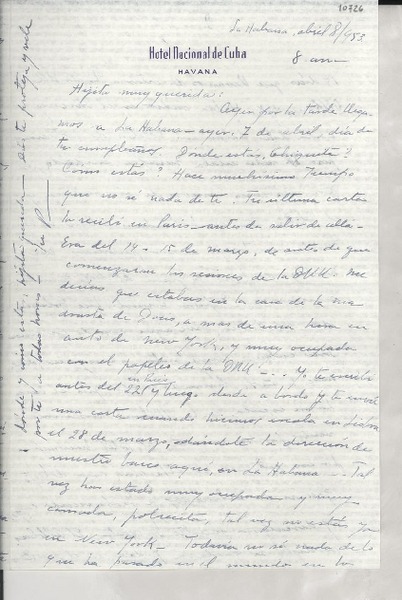 10726
La Habana, abril 8/953
Hotel Nacional de Cuba
HAVANA
8 am
Hijita muy querida:
Ayer por la tarde llega-
mos a La Habana - ayer, 7 de abril, día de
tu cumpleaños. Donde estas, Chiquita?
Como estas? Hace muchísimo tiempo
que no sé nada de ti. Tu última carta
la recibí en Paris - antes de salir de allá.
Era del 14 - 15 de marzo, de antes de que
comenzaran las sesiones de la ONU. Me
decías que estabas en la casa de la
de Doris, a mas de una hora en
auto de New York, y muy ocupada
con el papeleo de la ONU - . . Yo te escribí
en Paris
antes del 22 y luego desde a bordo y te
una carta cuando hicimos escala en
el 28 de marzo, dándote la dirección de
nuestro barco aquí, en La Habana - . Tal
vez has estado muy ocupada y muy
cansada, pobrecita, tal vez no estás ya
en New York - Todavía no sé nada de lo
que ha pasado en el mundo en los